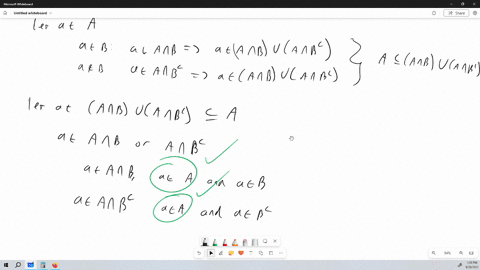 Microsoft Whiteboard
Untitled whiteboard
Share
let a∈ A
a∈B: a∈ A∩B => a∈(A∩B) ∪ (A∩B^c)
a∉B a∈ A∩B^c => a∈(A∩B) ∪(A∩B^c)
A ⊆(A∩B) ∪(A∩B^c)
let a∈ (A∩B) ∪(A∩B^c) ⊆ A
a∈ A∩B or A∩B^c
a∈A∩B, a∈ A and a∈B
a∈ A∩B^c a∈A and a∈B^c